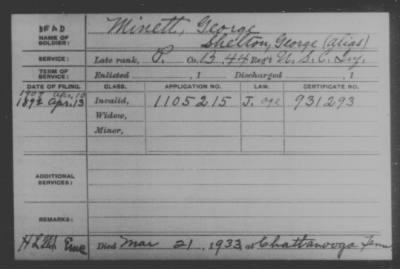 DEAD
NAME OF SOLDIER: Minett, George
Shelton, George (alias)
SERVICE: Late rank, P. Co. B. 44 Reg't U.S.C. Inf.
TERM OF SERVICE: Enlisted , 1 Discharged , 1
DATE OF FILING. CLASS. APPLICATION NO. LAW. CERTIFICATE NO.
1907 Apr. 10
1892 Apr. 13 Invalid, 1105215 J. age 931293
Widow,
Minor,
ADDITIONAL SERVICES:
REMARKS:
Died Mar 21, 1933 at Chattanooga Tenn